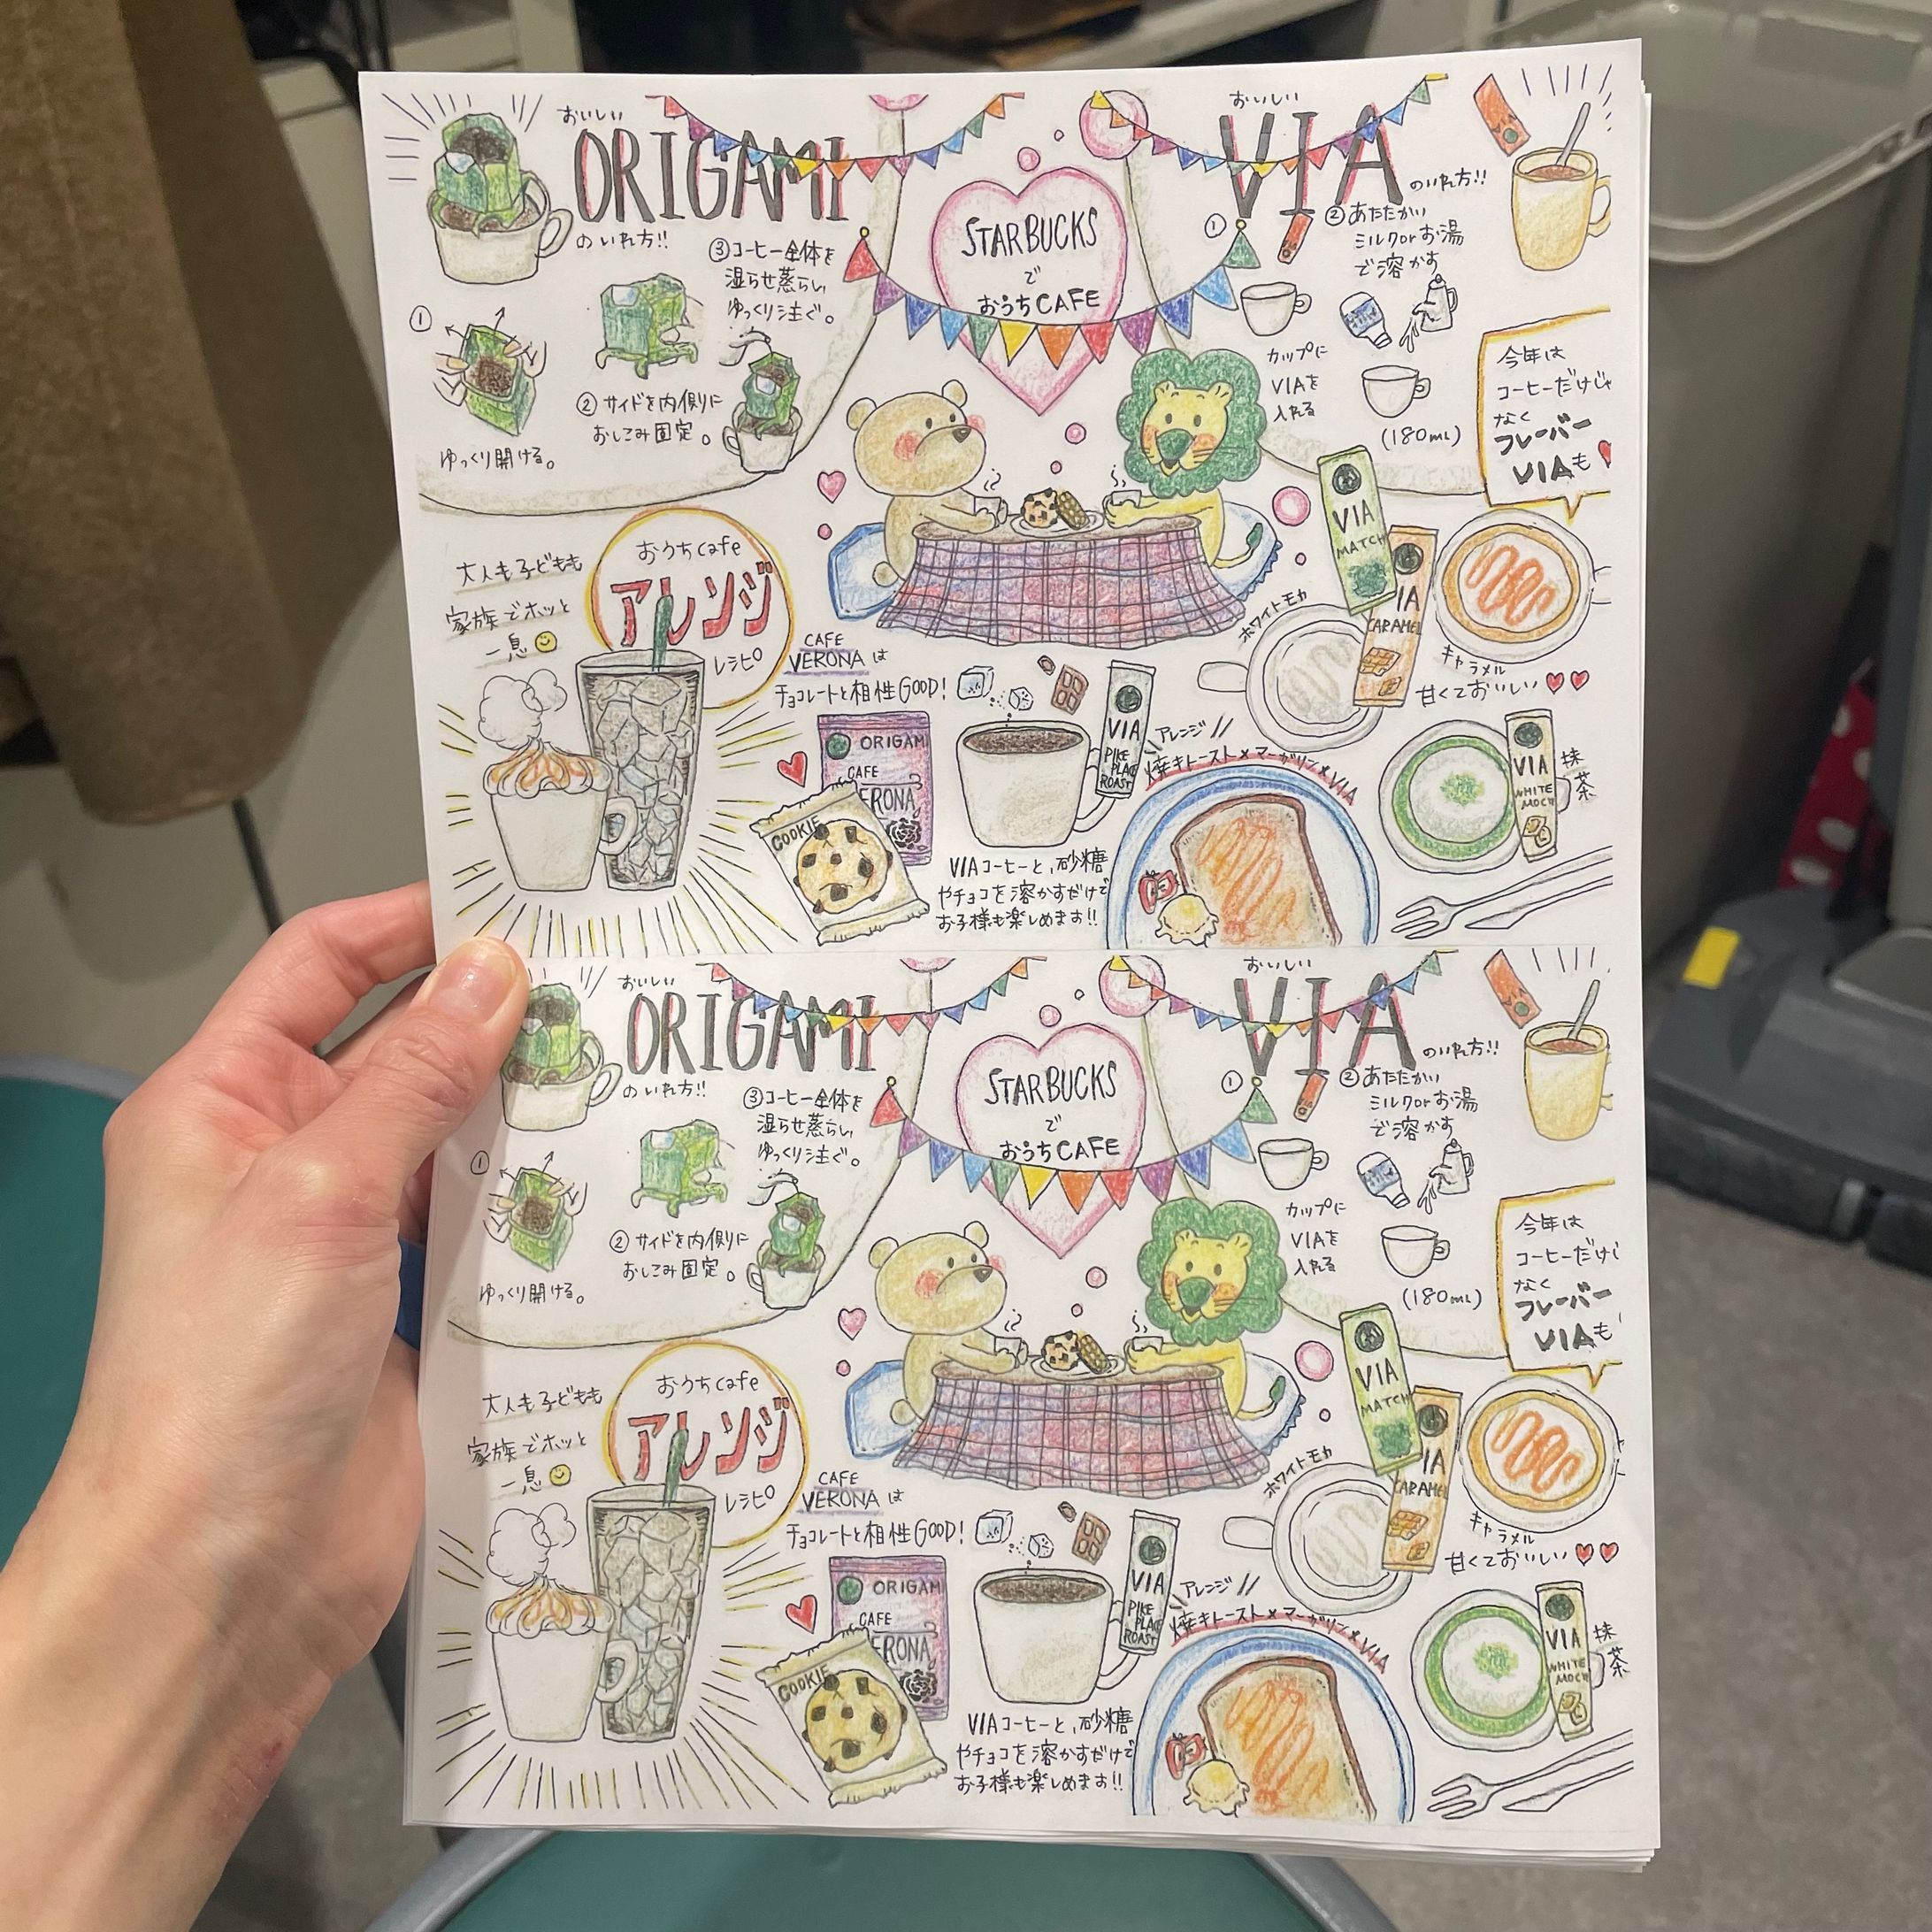 おいしい
ORIGAMI
のいれ方!!
①
ゆっくり開ける。
②サイドを内側に
おしこみ固定。
③コーヒー全体を
湿らせ蒸らし、
ゆっくり注ぐ。
STARBUCKS
で
おうちCAFE
おいしい
VIA
のいれ方!!
①
カップに
VIAを
入れる
②あたたかい
ミルクorお湯
で溶かす
(180ml)
今年は
コーヒーだけじゃ
なく
フレーバー
VIAも
大人も子どもも
家族でホッと
一息
おうちcafe
アレンジ
レシピ
CAFE
VERONA は
チョコレートと相性GOOD!
ORIGAMI
CAFE
VERONA
COOKIE
VIA
PIKE
PLACE
ROAST
VIAコーヒーと、砂糖
やチョコを溶かすだけで
お子様も楽しめます!!
アレンジ
焼きトースト×マーガリン×VIA
ホワイトモカ
VIA
MATCH
VIA
CARAMEL
キャラメル
甘くておいしい
VIA
WHITE
MOCH
抹
茶
おいしい
ORIGAMI
のいれ方!!
①
ゆっくり開ける。
②サイドを内側に
おしこみ固定。
③コーヒー全体を
湿らせ蒸らし、
ゆっくり注ぐ。
STARBUCKS
で
おうちCAFE
おいしい
VIA
のいれ方!!
①
カップに
VIAを
入れる
②あたたかい
ミルクorお湯
で溶かす
(180ml)
今年は
コーヒーだけじ
なく
フレーバー
VIAも
大人も子どもも
家族でホッと
一息
おうちcafe
アレンジ
レシピ
CAFE
VERONA は
チョコレートと相性GOOD!
ORIGAMI
CAFE
VERONA
COOKIE
VIA
PIKE
PLACE
ROAST
VIAコーヒーと、砂糖
やチョコを溶かすだけで
お子様も楽しめます!!
アレンジ
焼きトースト×マーガリン×VIA
ホワイトモカ
VIA
MATCH
VIA
CARAMEL
キャラメル
甘くておいしい
VIA
WHITE
MOCH
抹
茶